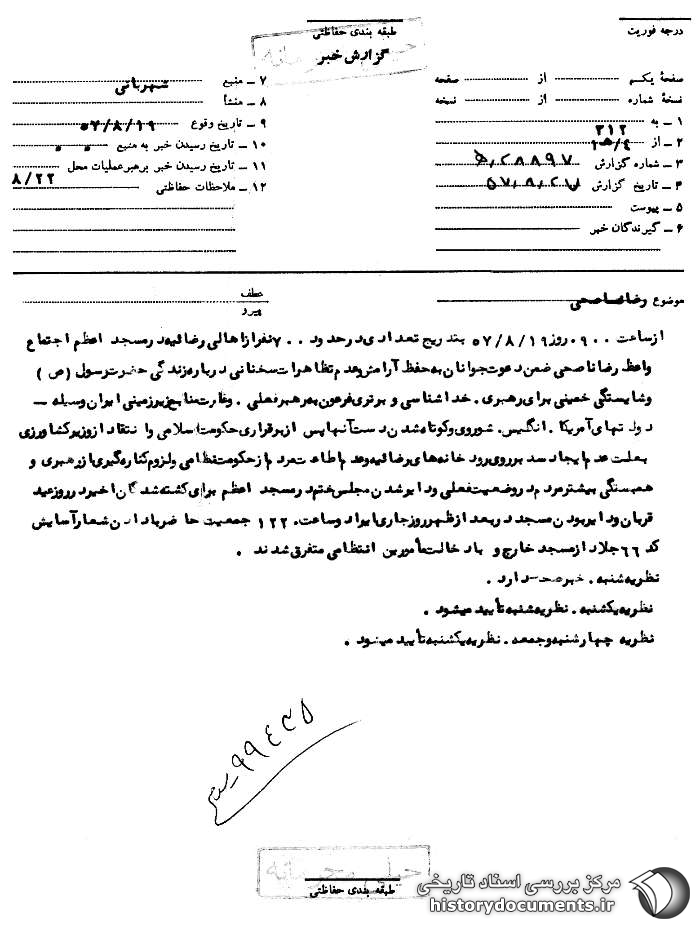 طبقه بندی حفاظتی
درجه فوریت
خیلی محرمانه
گزارش خبر
صفحهٔ یکم از صفحه
نسخهٔ شماره از نسخه
۱ – به ۳۱۲
۲ – از
۳ – شماره گزارش
۴ – تاریخ گزارش
۵ – پیوست
۶ – گیرندگان خبر
۷ – منبع شهربانی
۸ – منشأ
۹ – تاریخ وقوع ۵۷/۸/۱۹
۱۰ – تاریخ رسیدن خبر به منبع
۱۱ – تاریخ رسیدن خبر برهبر عملیات محل ۸/۲۲
۱۲ – ملاحظات حفاظتی
موضوع رضا ناصحی
عطف
پیرو
از ساعت ۰۹۰۰ روز ۵۷/۸/۱۹ بتدریج تعدادی در حدود ۷۰۰ نفر از اهالی رضائیه در مسجد اعظم اجتماع
واعظ رضا ناصحی ضمن دعوت جوانان به حفظ آرامش و عدم تظاهرات سخنانی درباره زندگی حضرت رسول (ص)
و شایستگی خمینی برای رهبری . خداشناسی و برتری فرعون به رهبر فعلی . و غارت منابع زیرزمینی ایران وسیله –
دولتهای آمریکا . انگلیس . شوروی و کوتاه شدن دست آنها پس از برقراری حکومت اسلامی و انتقاد از وزیر کشاورزی
بعلت عدم ایجاد سد بر روی رودخانه‌های رضائیه و عدم اطاعت مردم از حکومت نظامی و لزوم کناره گیری از رهبری و
همبستگی بیشتر مردم در وضعیت فعلی و دایر شدن مجلس ختم در مسجد اعظم برای کشته شدگان اخیر در روز عید
قربان و دایر بودن مسجد در بعد از ظهر روز جاری ایراد و ساعت ۱۲۲۰ جمعیت حاضر با دادن شعار آسایش
کد ۶۶ جلاد از مسجد خارج و با دخالت مأمورین انتظامی متفرق شدند .
نظریه شنبه . خبر صحت دارد .
نظریه یکشنبه . نظریه شنبه تأیید میشود .
نظریه چهارشنبه و جمعه . نظریه یکشنبه تأیید میشود .
خیلی محرمانه
طبقه بندی حفاظتی
مرکز بررسی اسناد تاریخی
historydocuments.ir